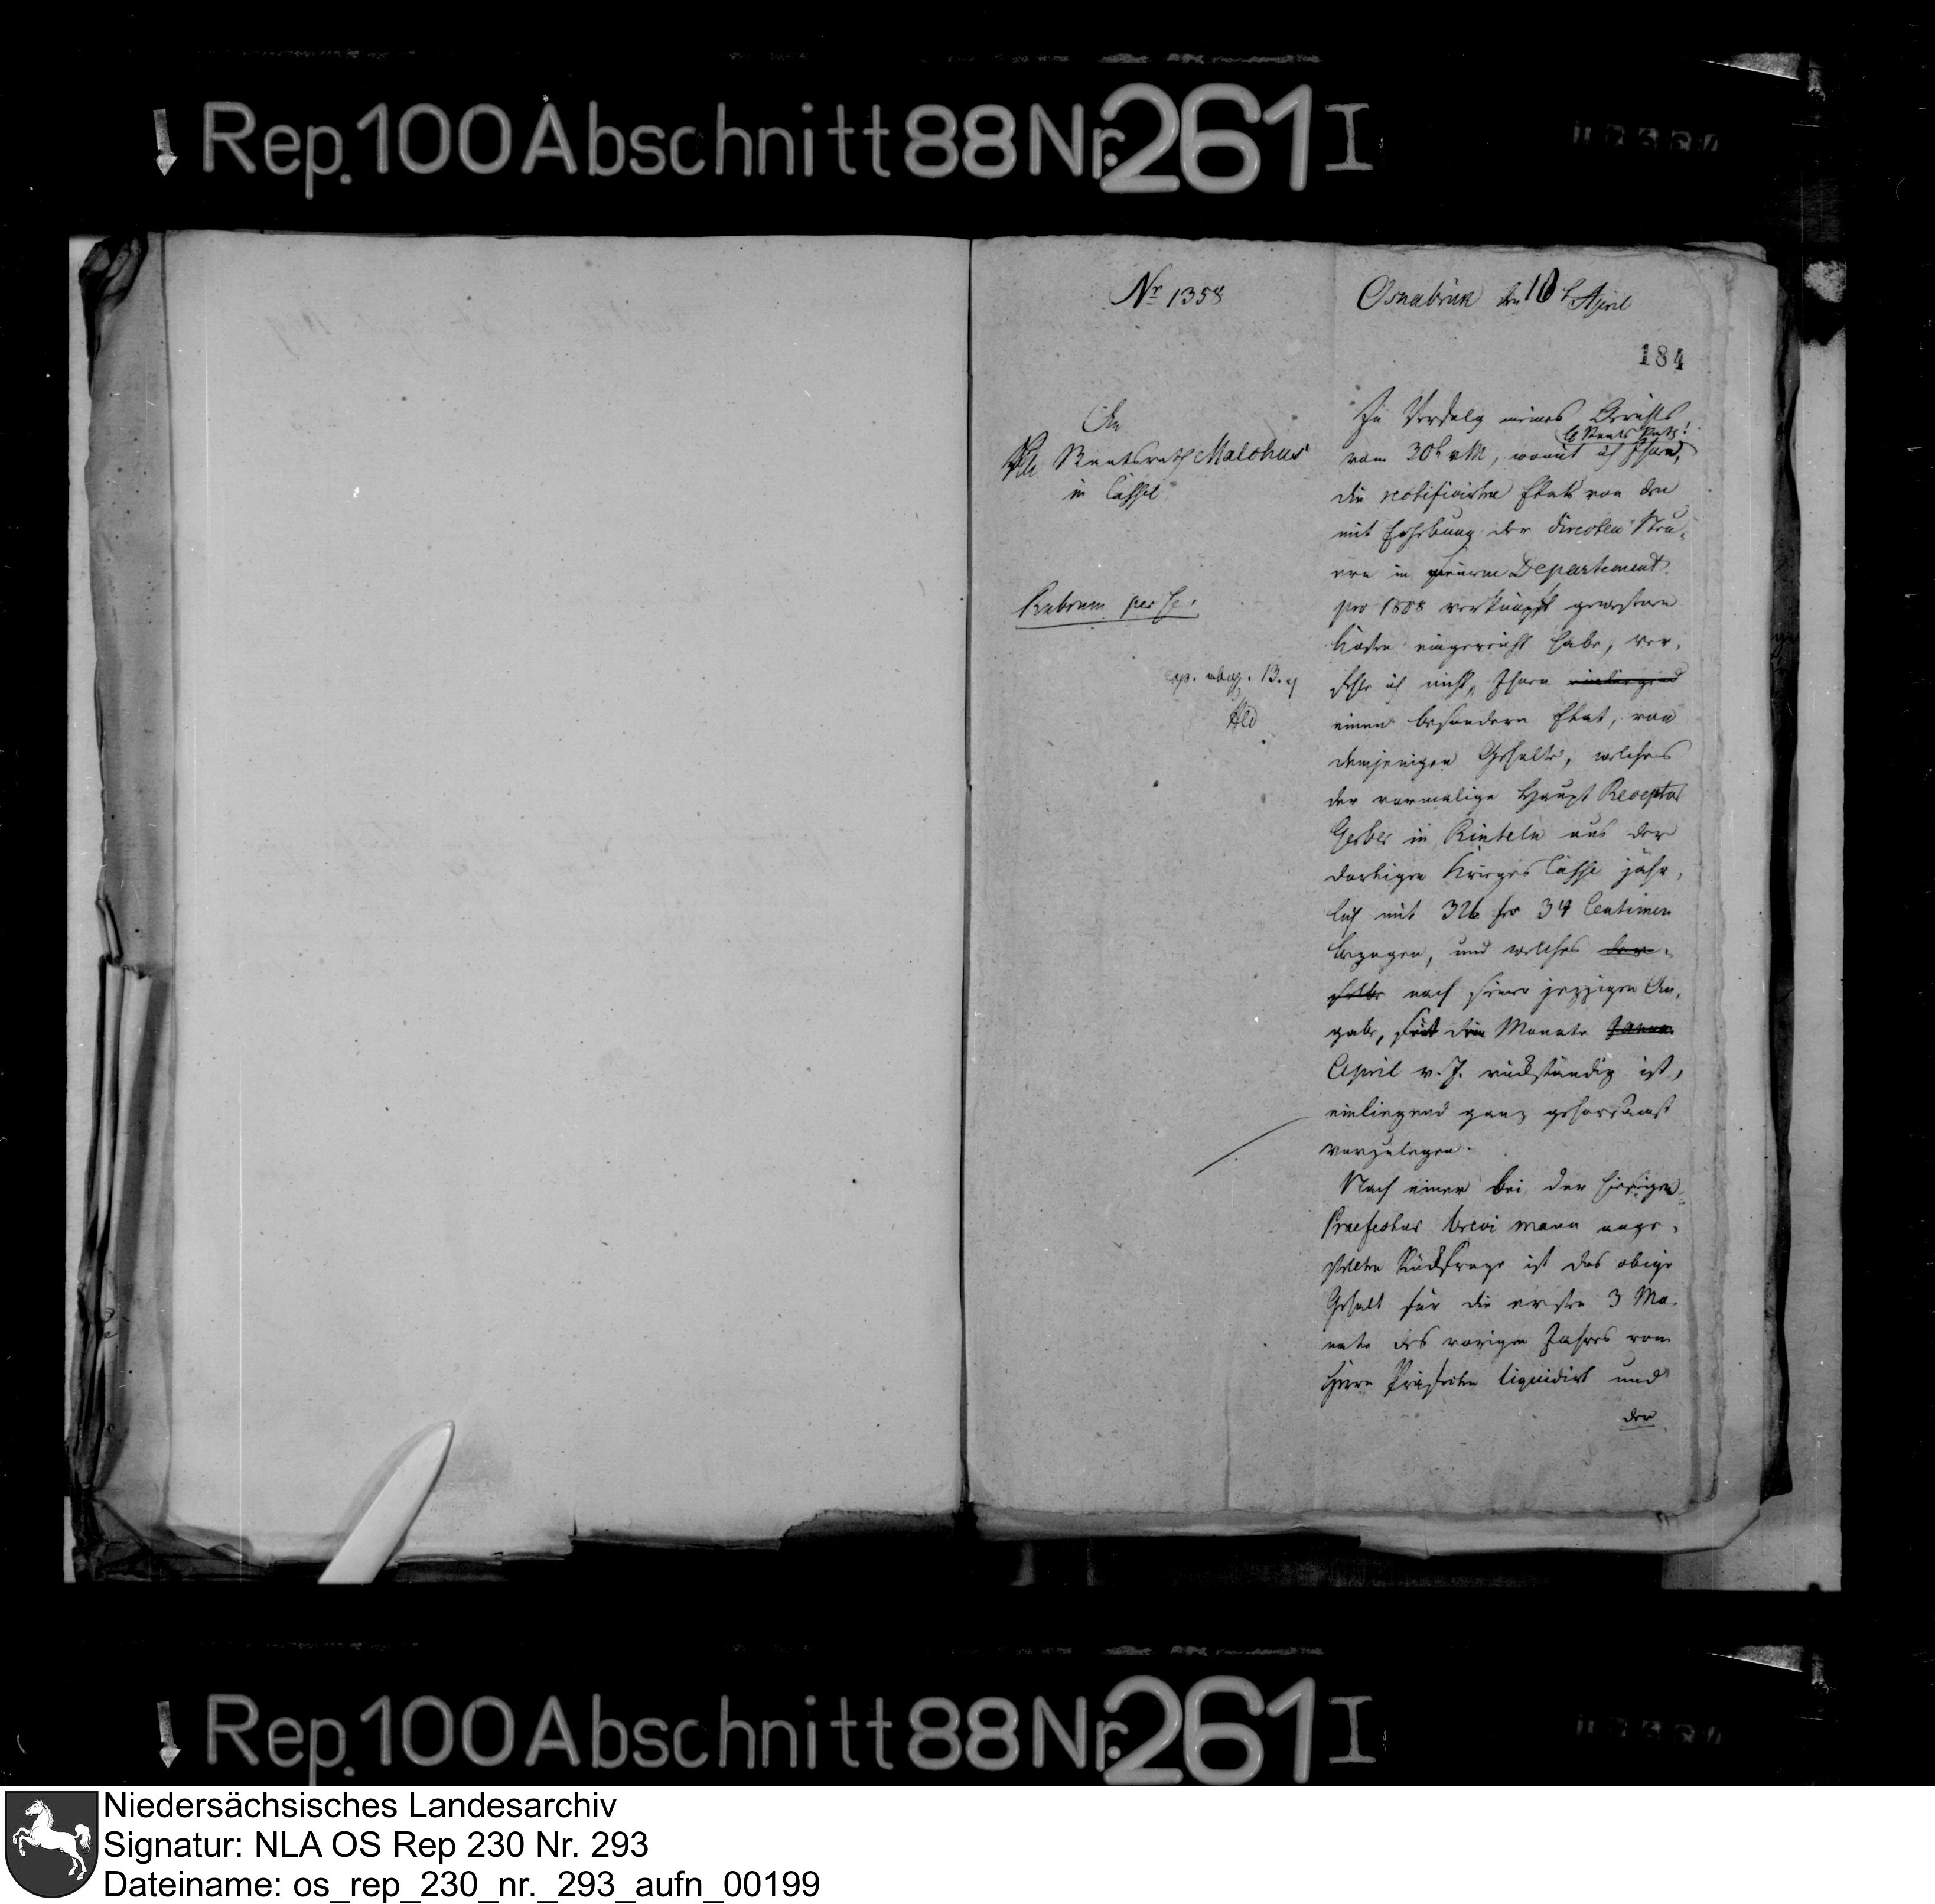 Rep. 100 Abschnitt 88 Nr. 261 I
Nr 1358
Osnabrük den 10t April
184
An
Staatsrath Malchus
in Cassel
Rubrum per se.
In Verfolg meines Berichts
H Staats Rath!
vom 30t v M, womit ich Ihnen,
die rectificirten Etats von den
mit Erhebung der directen Steu-
ern in meinem Departement
pro 1808 verknüpft gewesenen
Kosten eingereicht habe, ver-
fehle ich nicht, Ihnen
einen besondern Etat, von
demjenigen Gehalte, welches
der vormalige Haupt Receptor
Gerber in Rinteln aus der
dortigen Krieges Casse jähr-
lich mit 326 fr 34 Centimen
bezogen, und welches der-
selbe nach seiner jezzigen An-
gabe, seit dem Monate Janua
April v. J. rückständig ist,
einliegend ganz gehorsamst
vorzulegen.
Nach einer bei der hiesigen
Praefectur brevi manu ange-
stellten Rückfrage ist das obige
Gehalt für die ersten 3 Mo-
nate des vorigen Jahres vom
Herrn Präfecten liquidirt und
der
Rep. 100 Abschnitt 88 Nr. 261 I
Niedersächsisches Landesarchiv
Signatur: NLA OS Rep 230 Nr. 293
Dateiname: os_rep_230_nr._293_aufn_00199